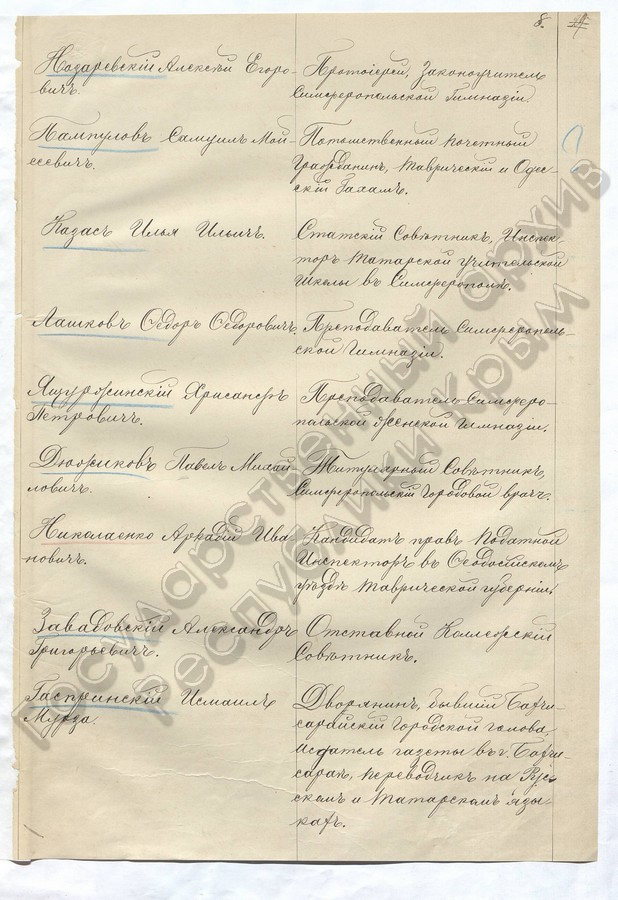 8.
Назаревскій Алексѣй Егоро-
вичъ.
Протоіерей, Законоучитель
Симферопольской Гимназіи.
Пампуловъ Самуилъ Мой-
сеевичъ.
Потомственный почетный
Гражданинъ, Таврическій и Одес-
скій Гахамъ.
Казасъ Илья Ильичъ.
Статскій Совѣтникъ, Инспек-
торъ Татарской учительской
Школы въ Симферополѣ.
Лашковъ Ѳедоръ Ѳедоровичъ
Преподаватель Симферополь-
ской Гимназіи.
Ящуржинскій Хрисанфъ
Петровичъ.
Преподаватель Симферо-
польской женской Гимназіи.
Дюжиковъ Павелъ Михай-
ловичъ.
Титулярный Совѣтникъ,
Симферопольскій Городовой врачъ.
Николаенко Аркадій Ива-
новичъ.
Кандидатъ правъ Податной
Инспекторъ въ Ѳеодосійскомъ
уѣздѣ Таврической губерніи.
Завадовскій Александръ
Григорьевичъ.
Отставной Коллежскій
Совѣтникъ.
Гаспринскій Исмаилъ
Мурза.
Дворянинъ, бывшій Бахчи-
сарайскій Городской голова,
издатель газеты въ г. Бахчи-
сараѣ, переводчикъ на Рус-
скомъ и Татарскомъ язы-
кахъ.
Государственный архив
Республики Крым